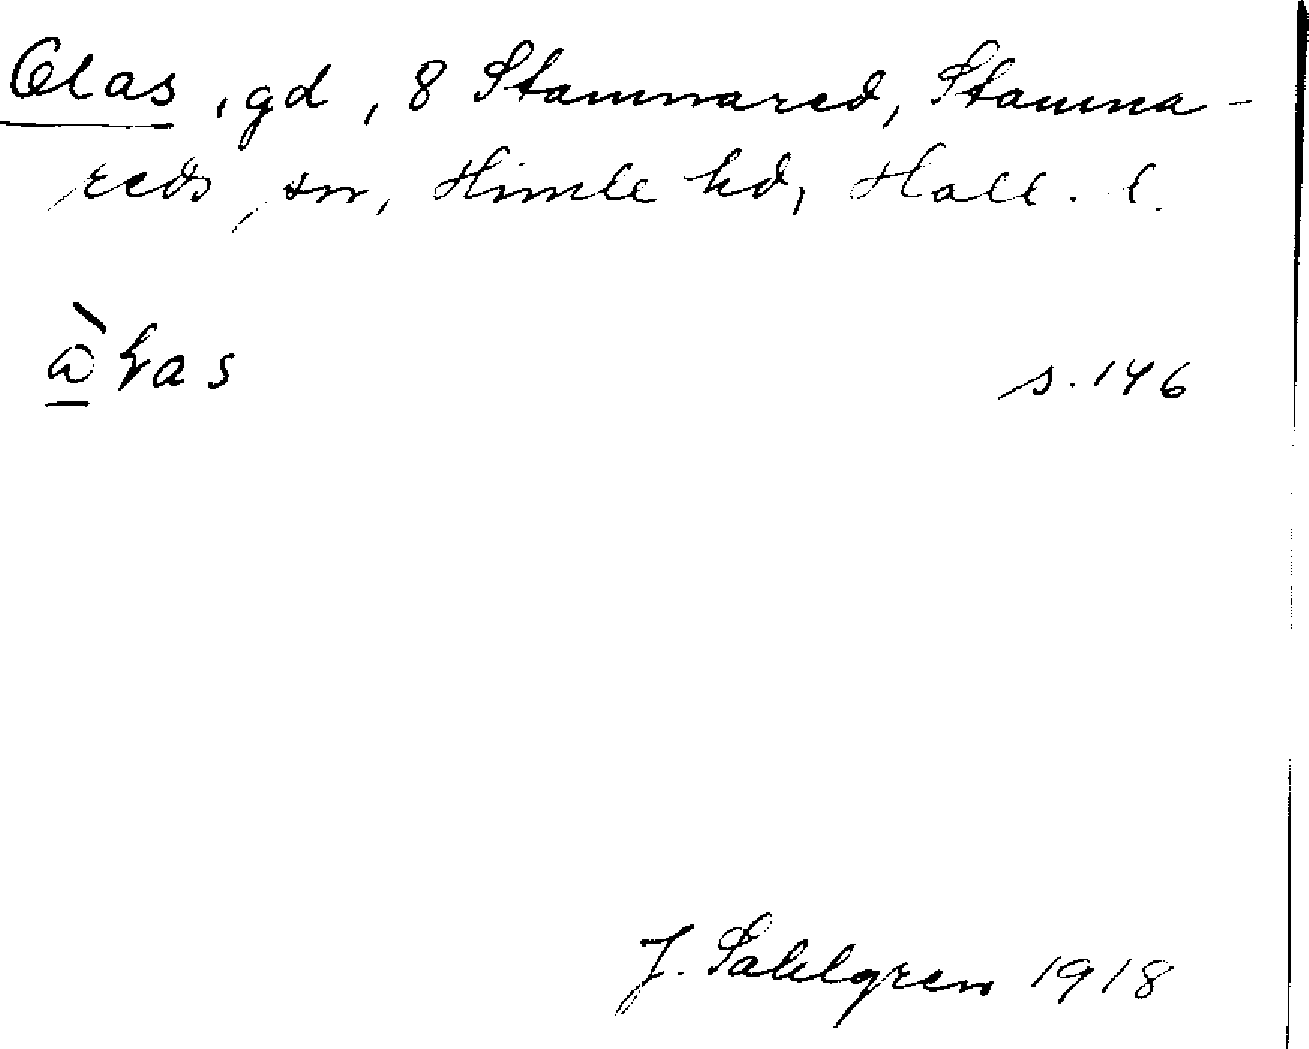 Olas, gd, 8 Stamnared, Stamna-
reds sn, Himle hd, Hall. l.
s. 146
J. Sahlgren 1918